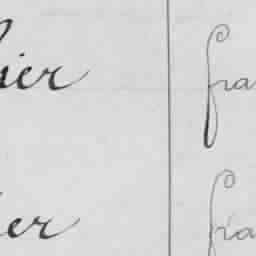 ier fra
ier fra